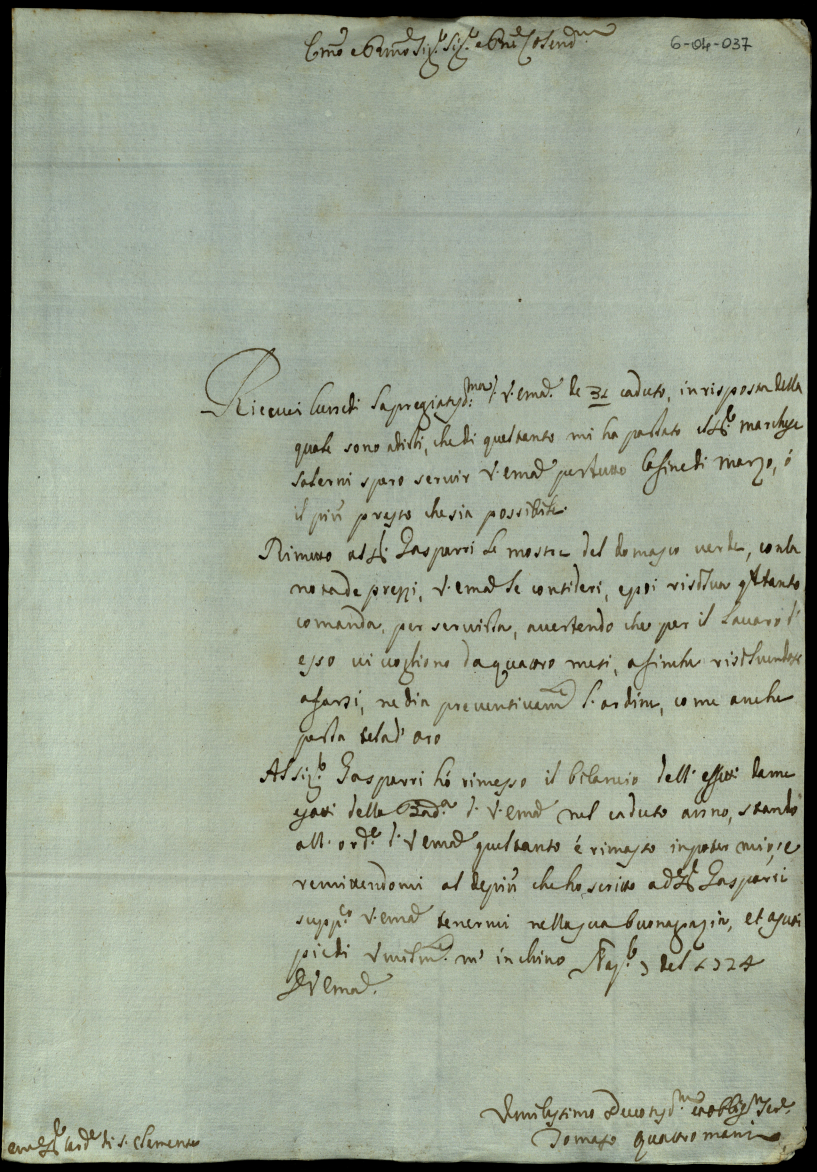 6-04-037
Em̃o e R̃mo Sig.r Sig.r e P̃ne Col.endm̃o
Riceuei lunedi la pregiatiss.ma di V. Em.a de 31 caduto, in risposta della
quale sono a dirli, che di quel tanto mi ha parlato il Sig.r marchese
Salerni spero seruir V. Em.a per tutto la fine di marzo, ó
il più presto che sia possibile.
Rimetto al Sig.r Gasparri le mostre del domasco uerde, con la
nota de prezzi, V. Em.a le consideri, e poi risolua q.l tanto
comanda, per seruirla, auertendo che per il lauoro d'
esso ui uogliono da quattro mesi, affinche risoluendosi
a farsi, ne dia preuentiuam.e l'ordine, come anche
per la tela d'oro
Al Sig.r Gasparri hó rimesso il bilancio dell' effetti
della Bad.a di V. Em.a nel caduto anno, stando
all' ord.e di V. Em.a quel tanto é rimasto in poter mio, e
remittendomi al depiù che ho scritto ad.o Sig.r Gasparri
supp.co V. Em.a tenermi nella sua buona grazia, et a suoi
piedi umilm.e m' inchino Nap. 5 del 1724
D V. Em.a
Umilissimo Deuotiss.mo et obblig.mo Ser.e
Tomaso quattromani
em.o Sig.r Card.e di S. Clemente